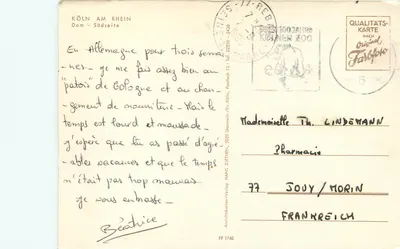 KÖLN AM RHEIN
Dom - Südseite
En Allemagne pour trois semai
-nes- je me fais assez bien au
"patois" de Cologne et au chan-
gement de nourriture - Mais le
temps est lourd et maussade -
J'espère que tu as passé d'agré-
-ables vacances et que le temps
n'était pas trop mauvais
Je vous embrasse -
Béatrice
100 JAHRE
KÖLNER ZOO
QUALITÄTS-
KARTE
Original
Farbfoto
Mademoiselle Th. LINDEMANN
Pharmacie
77 JOUY/MORIN
FRANKREICH